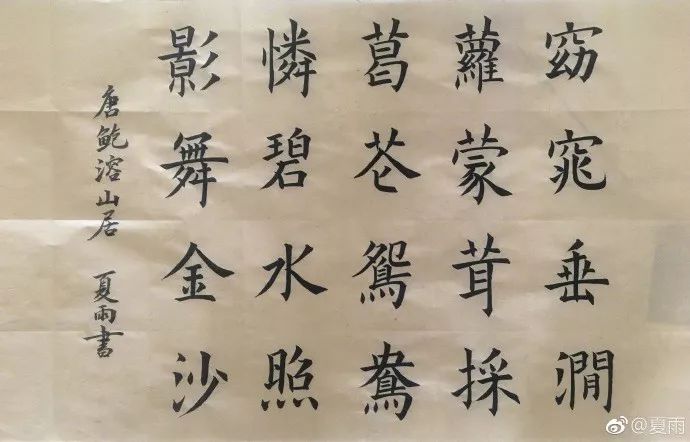 窈窕垂澗
蘿蒙茸採
葛花鴛鴦
憐碧水照
影舞金沙
唐鮑溶山居 夏雨書
@夏雨